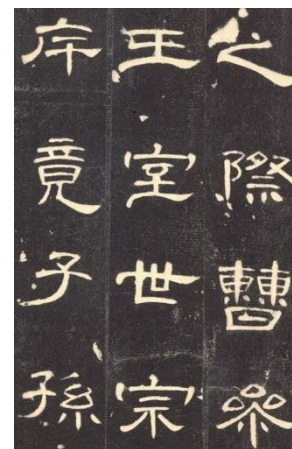 之際曹參
王室世宗
斥竟子孫